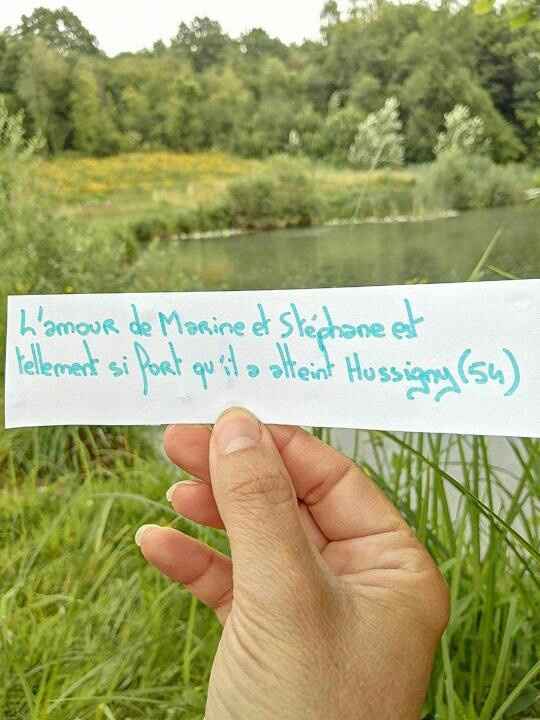 L'amour de Marine et Stéphane est
tellement si fort qu'il a atteint Hussigny (54)